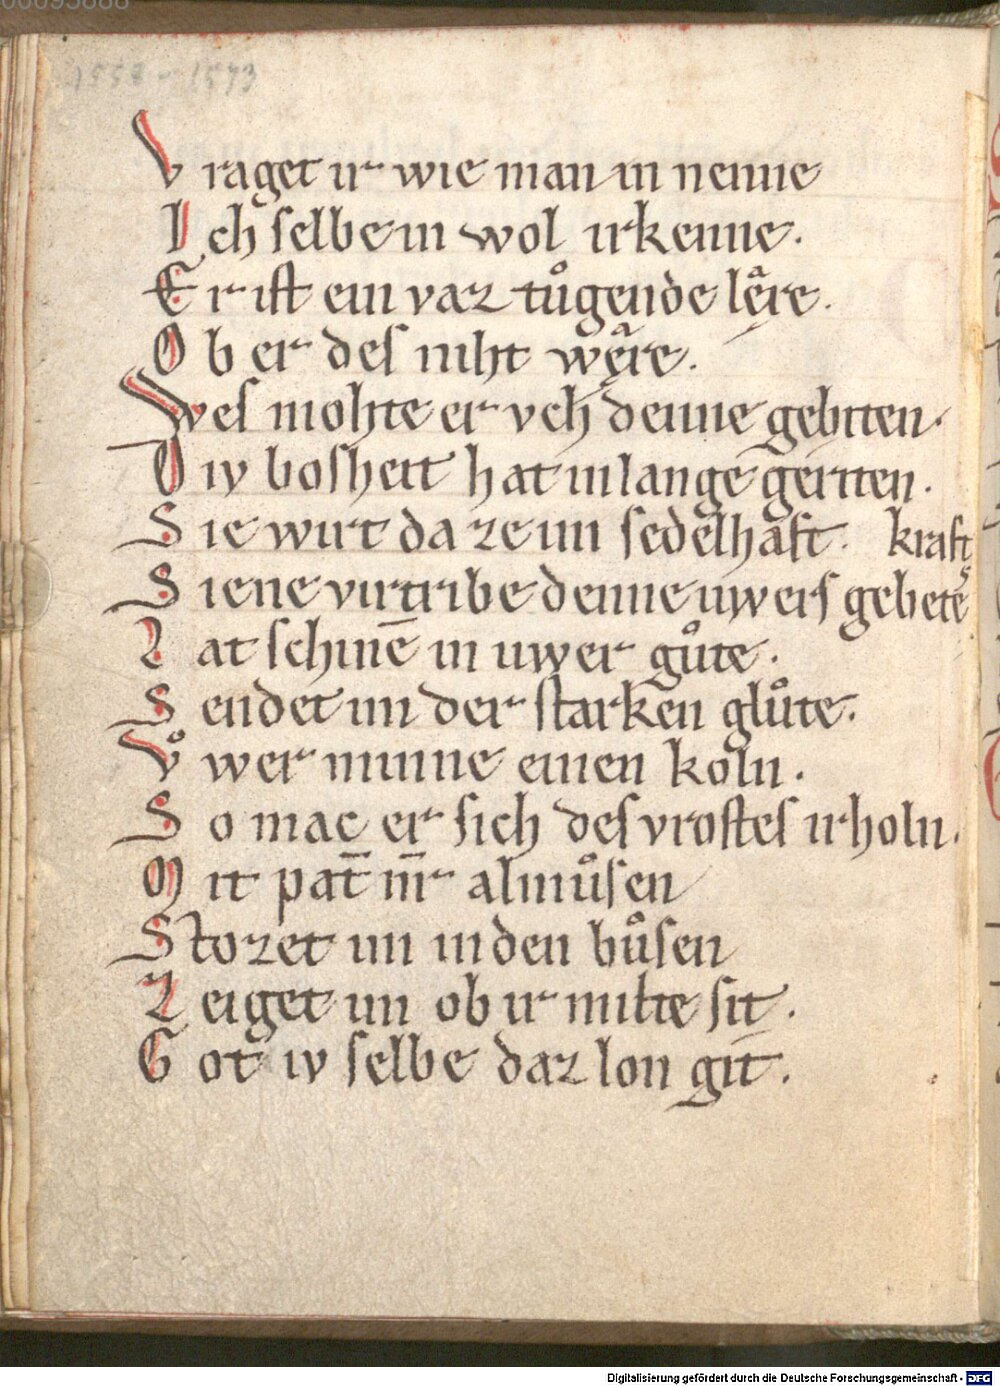 00095888
1558 – 1573
Vraget ir wie man in nenne
Ich ſelbe in wol irkenne.
Er iſt ein vaz tuͦgende lęre.
Ob er des niht węre.
Wes mohte er vch denne gebitten.
Diͮ bosheit hat in lange geritten.
Sie wirt da ze im ſedelhaft. kraft
Siene virtribe denne uwers gebetes
Lat ſchinē in uwer guͦte.
Sendet im der ſtarken gluͦte.
Vͦwer minne einen koln.
So mac er ſich des vroſtes irholn.
Mit pat̄ nr̄ almuͦſen
Stozet im in den buͦſen
Zeiget im ob ir milte ſit.
Got iv ſelbe daz lon git.
Digitalisierung gefördert durch die Deutsche Forschungsgemeinschaft - DFG